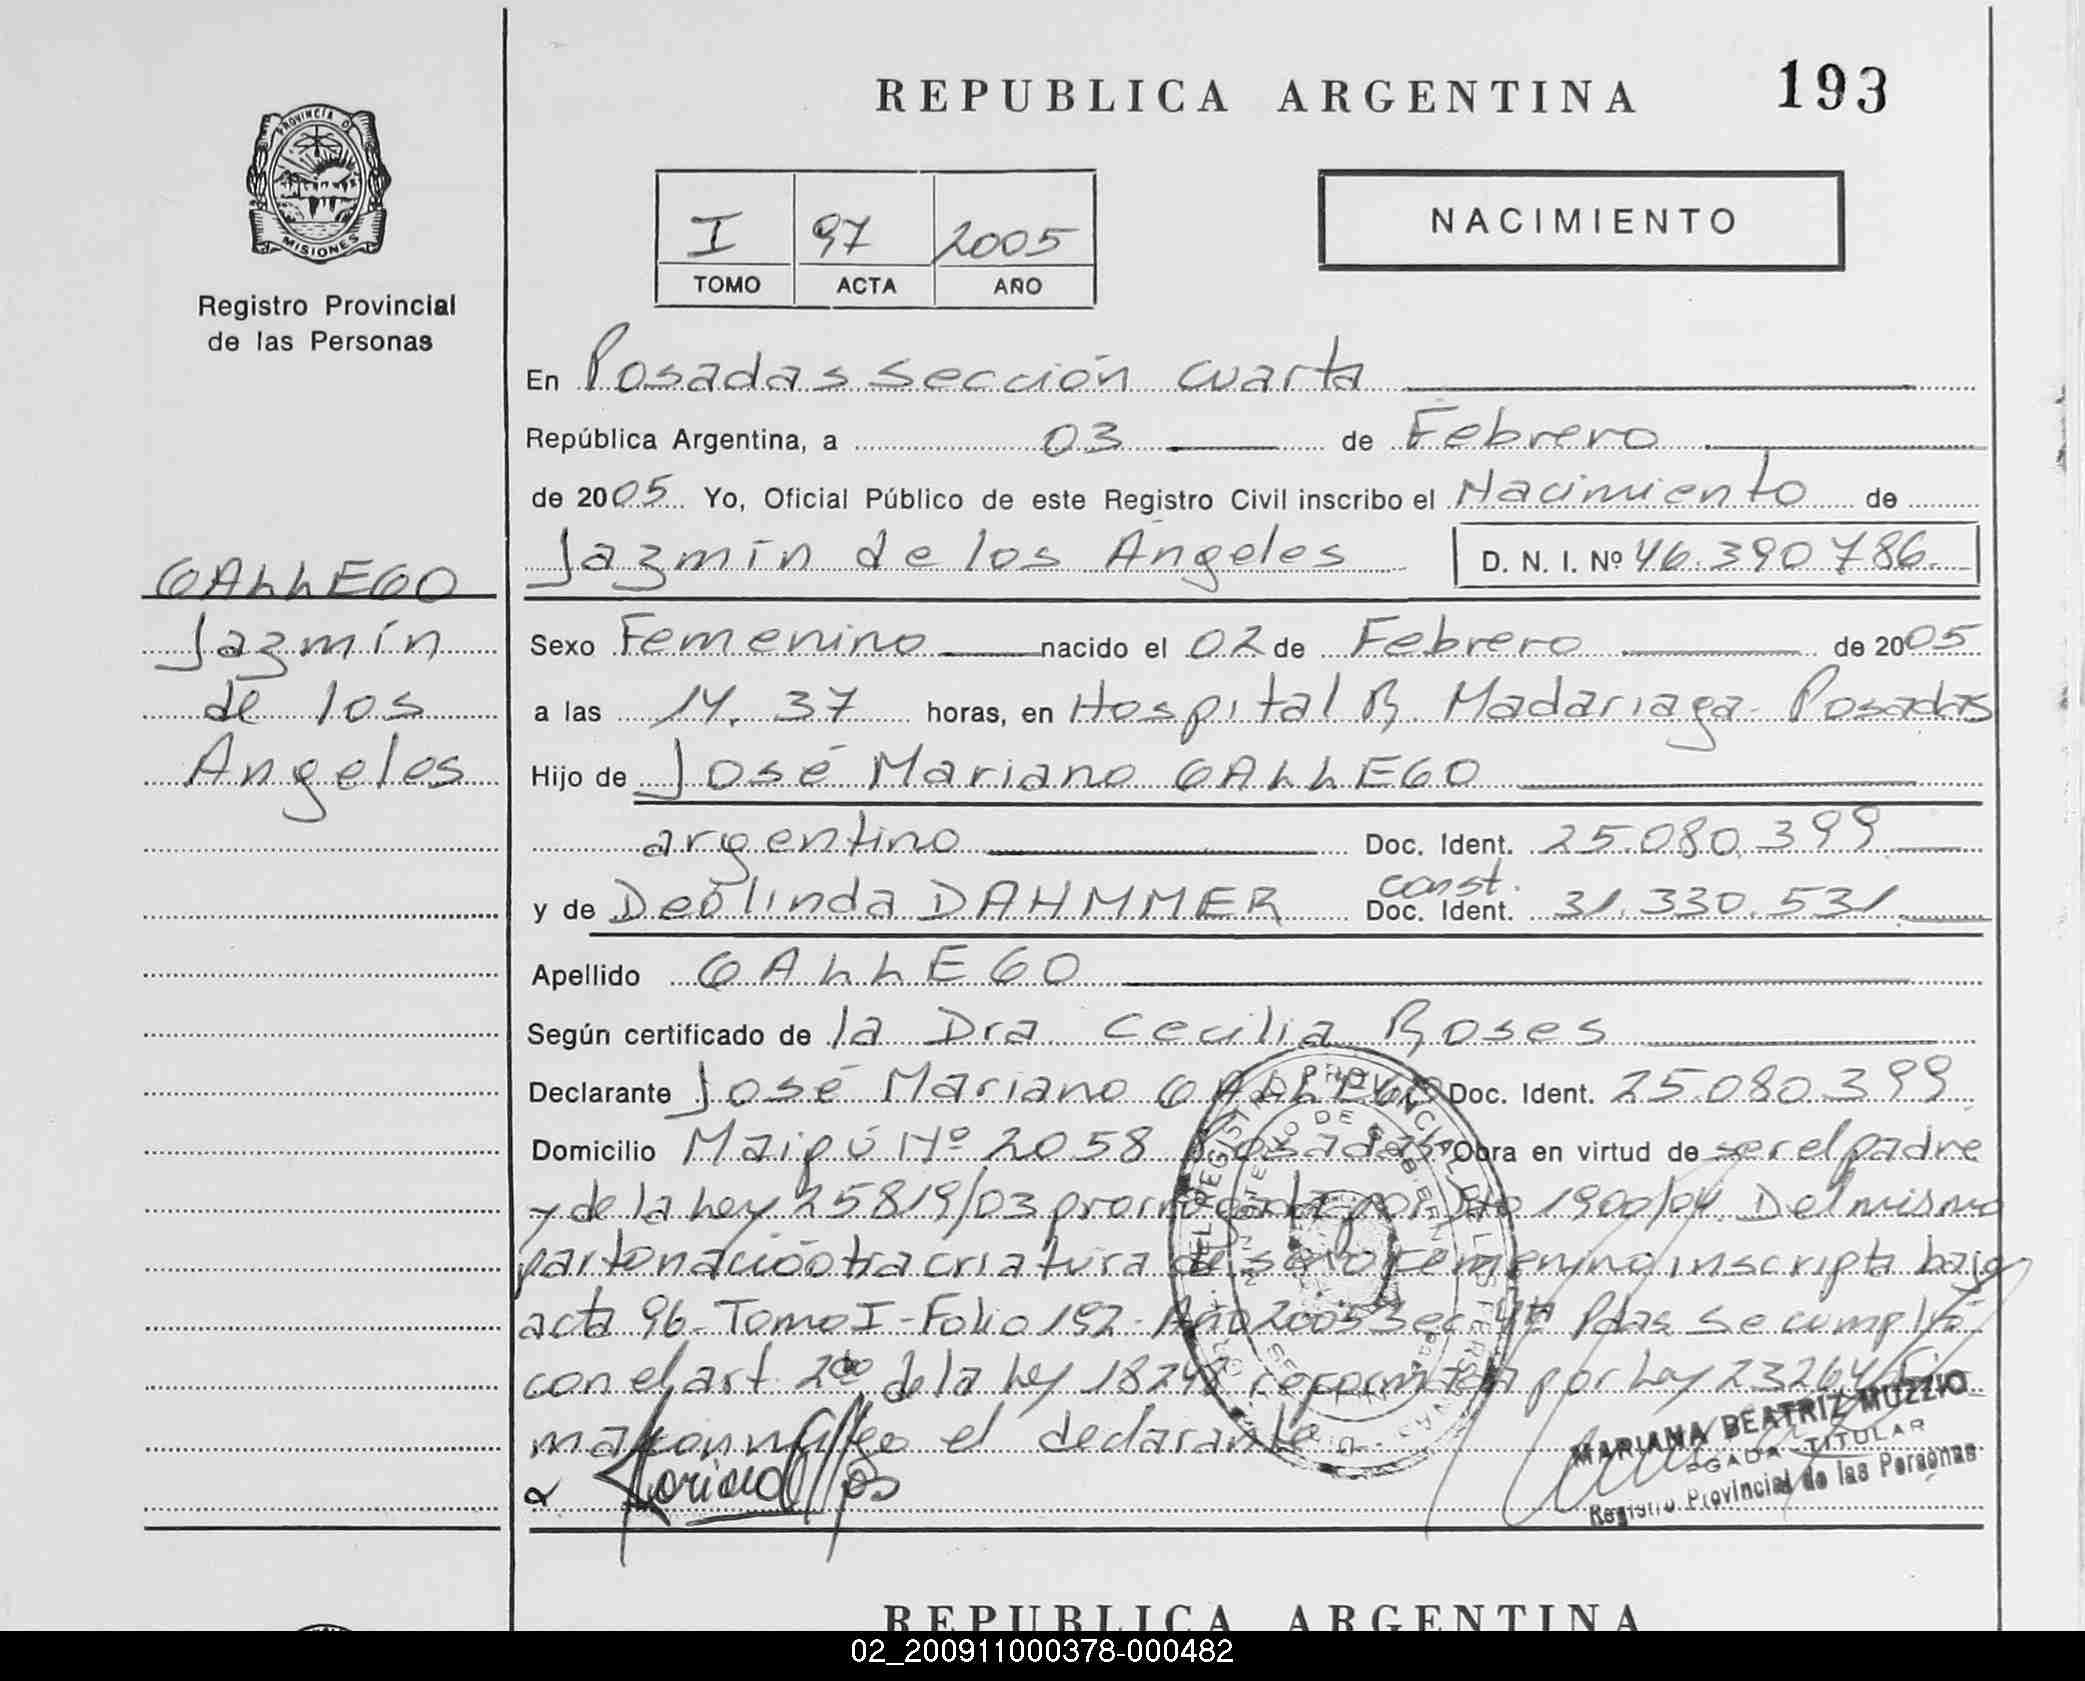 REPUBLICA ARGENTINA 193
PROVINCIA DE
MISIONES
Registro Provincial
de las Personas
I 97 2005
TOMO ACTA AÑO
NACIMIENTO
En Posadas sección cuarta
República Argentina, a 03 de Febrero
de 2005 Yo, Oficial Público de este Registro Civil inscribo el Nacimiento de
Jazmín de los Angeles D. N. I. Nº 46.390.786
GALLEGO
Jazmín
de los
Angeles
Sexo Femenino nacido el 02 de Febrero de 2005
a las 14.37 horas, en Hospital R. Madariaga - Posadas
Hijo de José Mariano GALLEGO
argentino Doc. Ident. 25.080.399
y de Deolinda DAHMMER const. Doc. Ident. 31.330.531
Apellido GALLEGO
Según certificado de la Dra Cecilia Roses
Declarante José Mariano GALLEGO Doc. Ident. 25.080.399
Domicilio Maipú Nº 2058 Posadas Obra en virtud de ser el padre
y de la Ley 25819/03 prorrogada por Dto 1900/04. Del mismo
parto nació otra criatura de sexo femenino inscripta bajo
acta 96 - Tomo I - Folio 192 - Año 2005 Sec 4ta Pdas. Se cumplió
con el art. 2do de la Ley 18248 reformada por Ley 23264 Fir
ma conmigo el declarante
MARIANA BEATRIZ MUZZIO
TITULAR
Registro Provincial de las Personas
REPUBLICA ARGENTINA
02_200911000378-000482